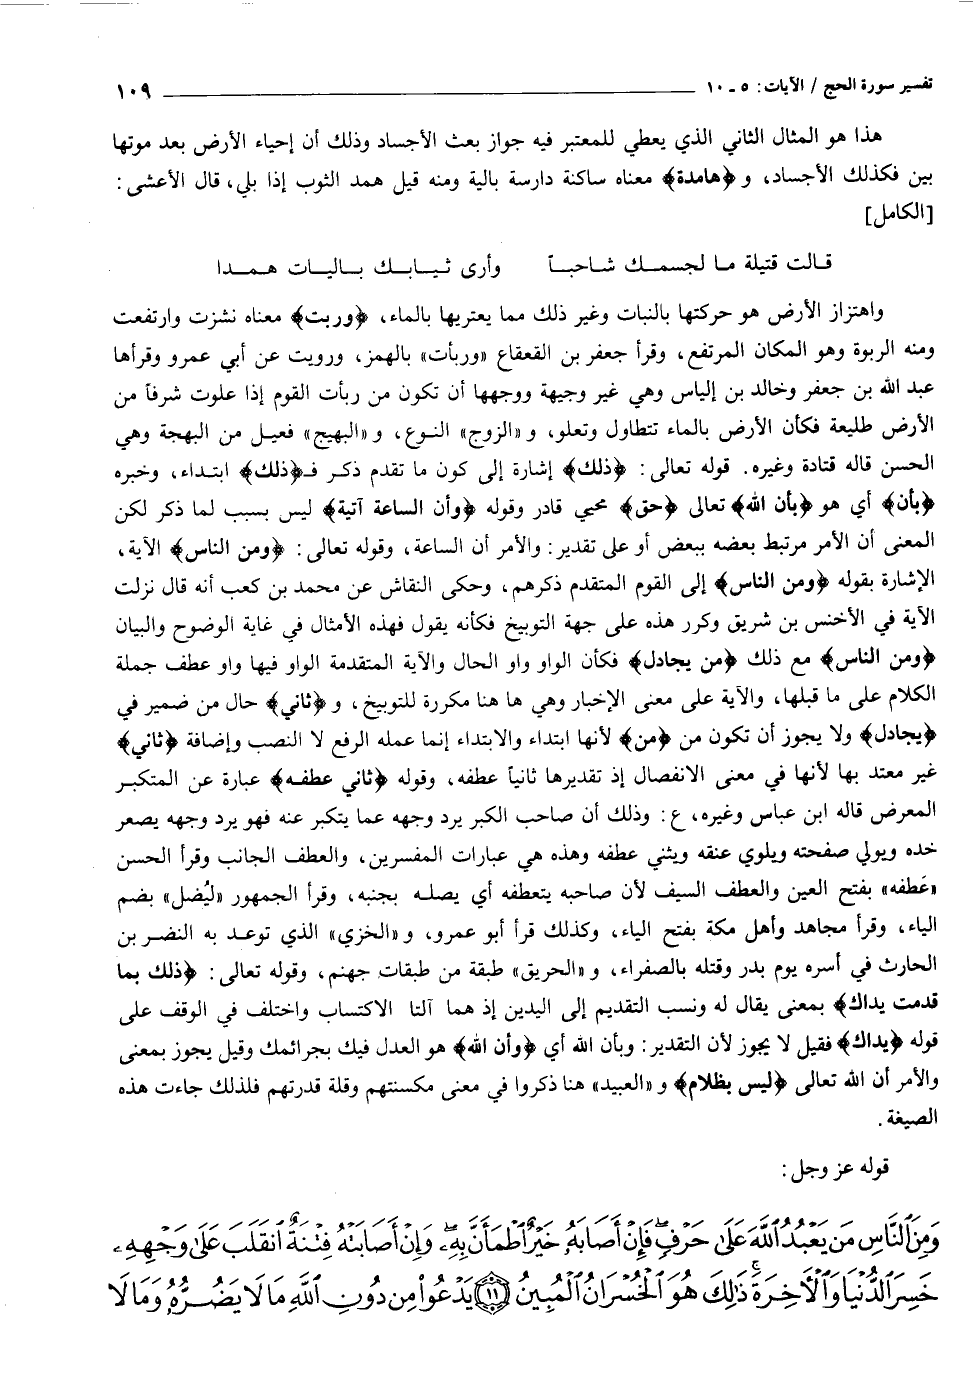 تفسير سورة الحج / الآيات: ٥ ـ ١٠ ١٠٩
هذا هو المثال الثاني الذي يعطي للمعتبر فيه جواز بعث الأجساد وذلك أن إحياء الأرض بعد موتها
بين فكذلك الأجساد، و ﴿هامدة﴾ معناه ساكنة دارسة بالية ومنه قيل همد الثوب إذا بلي، قال الأعشى:
[الكامل]
قالت قتيلة ما لجسمك شاحباً وأرى ثيابك باليات همدا
واهتزاز الأرض هو حركتها بالنبات وغير ذلك مما يعتريها بالماء، ﴿وربت﴾ معناه نشزت وارتفعت
ومنه الربوة وهو المكان المرتفع، وقرأ جعفر بن القعقاع «وربأت» بالهمز، ورويت عن أبي عمرو وقرأها
عبد الله بن جعفر وخالد بن إلياس وهي غير وجيهة ووجهها أن تكون من ربأت القوم إذا علوت شرفاً من
الأرض طليعة فكأن الأرض بالماء تتطاول وتعلو، و «الزوج» النوع، و «البهيج» فعيل من البهجة وهي
الحسن قاله قتادة وغيره. قوله تعالى: ﴿ذلك﴾ إشارة إلى كون ما تقدم ذكر فـ﴿ذلك﴾ ابتداء، وخبره
﴿بأن﴾ أي هو ﴿بأن الله﴾ تعالى ﴿حق﴾ محيي قادر وقوله ﴿وأن الساعة آتية﴾ ليس بسبب لما ذكر لكن
المعنى أن الأمر مرتبط بعضه ببعض أو على تقدير: والأمر أن الساعة، وقوله تعالى: ﴿ومن الناس﴾ الآية،
الإشارة بقوله ﴿ومن الناس﴾ إلى القوم المتقدم ذكرهم، وحكى النقاش عن محمد بن كعب أنه قال نزلت
الآية في الأخنس بن شريق وكرر هذه على جهة التوبيخ فكأنه يقول فهذه الأمثال في غاية الوضوح والبيان
﴿ومن الناس﴾ مع ذلك ﴿من يجادل﴾ فكأن الواو واو الحال والآية المتقدمة الواو فيها واو عطف جملة
الكلام على ما قبلها، والآية على معنى الإخبار وهي ها هنا مكررة للتوبيخ، و ﴿ثاني﴾ حال من ضمير في
﴿يجادل﴾ ولا يجوز أن تكون من ﴿من﴾ لأنها ابتداء والابتداء إنما عمله الرفع لا النصب وإضافة ﴿ثاني﴾
غير معتد بها لأنها في معنى الانفصال إذ تقديرها ثانياً عطفه، وقوله ﴿ثاني عطفه﴾ عبارة عن المتكبر
المعرض قاله ابن عباس وغيره، ع: وذلك أن صاحب الكبر يرد وجهه عما يتكبر عنه فهو يرد وجهه يصعر
خده ويولي صفحته ويلوي عنقه ويثني عطفه وهذه هي عبارات المفسرين، والعطف الجانب وقرأ الحسن
«عَطفه» بفتح العين والعطف السيف لأن صاحبه يتعطفه أي يصله بجنبه، وقرأ الجمهور «ليُضل» بضم
الياء، وقرأ مجاهد وأهل مكة بفتح الياء، وكذلك قرأ أبو عمرو، و «الخزي» الذي توعد به النضر بن
الحارث في أسره يوم بدر وقتله بالصفراء، و «الحريق» طبقة من طبقات جهنم، وقوله تعالى: ﴿ذلك بما
قدمت يداك﴾ بمعنى يقال له ونسب التقديم إلى اليدين إذ هما آلتا الاكتساب واختلف في الوقف على
قوله ﴿يداك﴾ فقيل لا يجوز لأن التقدير: وبأن الله أي ﴿وأن الله﴾ هو العدل فيك بجرائمك وقيل يجوز بمعنى
والأمر أن الله تعالى ﴿ليس بظلام﴾ و «العبيد» هنا ذكروا في معنى مكسنتهم وقلة قدرتهم فلذلك جاءت هذه
الصيغة.
قوله عز وجل:
وَمِنَ ٱلنَّاسِ مَن يَعْبُدُ ٱللَّهَ عَلَىٰ حَرْفٍۖ فَإِنْ أَصَابَهُۥ خَيْرٌ ٱطْمَأَنَّ بِهِۦۖ وَإِنْ أَصَابَتْهُ فِتْنَةٌ ٱنقَلَبَ عَلَىٰ وَجْهِهِۦ
خَسِرَ ٱلدُّنْيَا وَٱلْأَخِرَةَۚ ذَٰلِكَ هُوَ ٱلْخُسْرَانُ ٱلْمُبِينُ ﴿١١﴾ يَدْعُواْ مِن دُونِ ٱللَّهِ مَا لَا يَضُرُّهُۥ وَمَا لَا